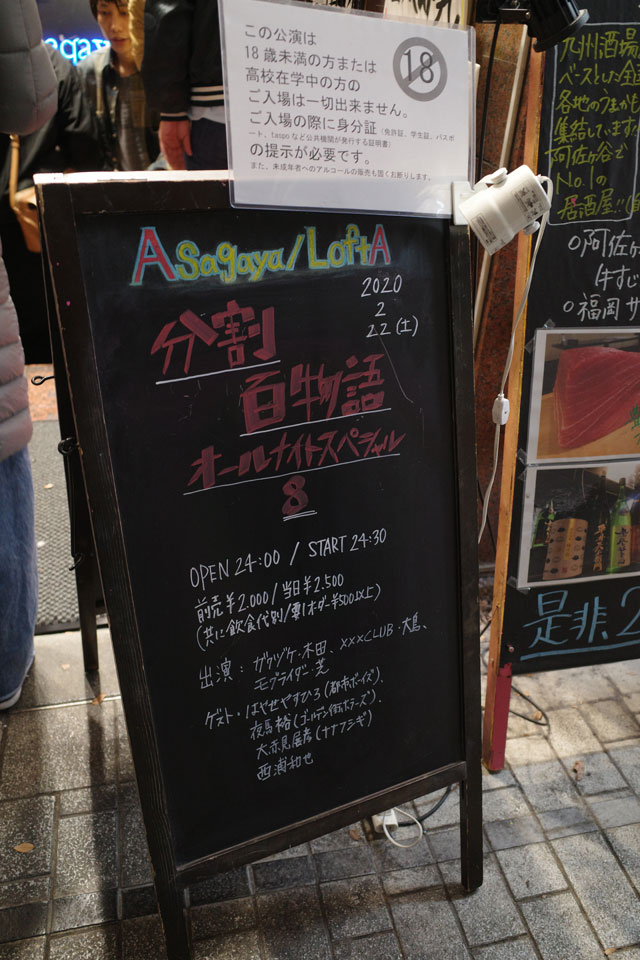 この公演は
18歳未満の方または
高校在学中の方の
ご入場は一切出来ません。
ご入場の際に身分証（免許証、学生証、パスポ
ート、taspoなど公共機関が発行する証明書）
の提示が必要です。
また、未成年者へのアルコールの販売も固くお断りします。
18
Asagaya/LoftA
2020
2
22(土)
分割
百物語
オールナイトスペシャル
8
OPEN 24:00 / START 24:30
前売¥2.000/当日¥2.500
(共に飲食代別/要1オーダー¥500以上)
出演：ガリゾケ・木田、×××CLUB・大島、
モブライダー・芝
ゲスト・はやせやすひろ(都市ボーイズ)、
夜馬裕(ゴールデン街ホラーズ)、
大赤見展彦(ナナフシギ)
西浦和也
九州酒場
ベースとした全
各地のうまかも
集結しています
阿佐ヶ谷で
No.1の
居酒屋!!
○阿佐ヶ
牛すじ
○福岡サ
是非